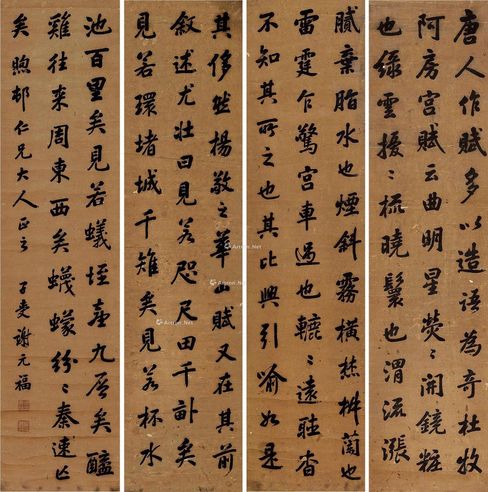 唐人作賦多以造語為奇杜牧
阿房宮賦云曲明星熒〻開鏡粧
也綠雲擾〻梳曉鬟也渭流漲
膩棄脂水也煙斜霧橫焚椒蘭也
雷霆乍驚宮車過也轆〻遠聽杳
不知其所之也其比興引喻如是
其侈然楊敬之華山賦又在其前
敘述尤壯曰見若咫尺田千畝矣
見若環堵城千雉矣見若杯水
池百里矣見若蟻垤臺九層矣醯
雞往來周東西矣蠛蠓紛〻秦速亡
矣 煦邨仁兄大人正之 子受謝元福
Artron.Net
Artron.Net
Artron.Net